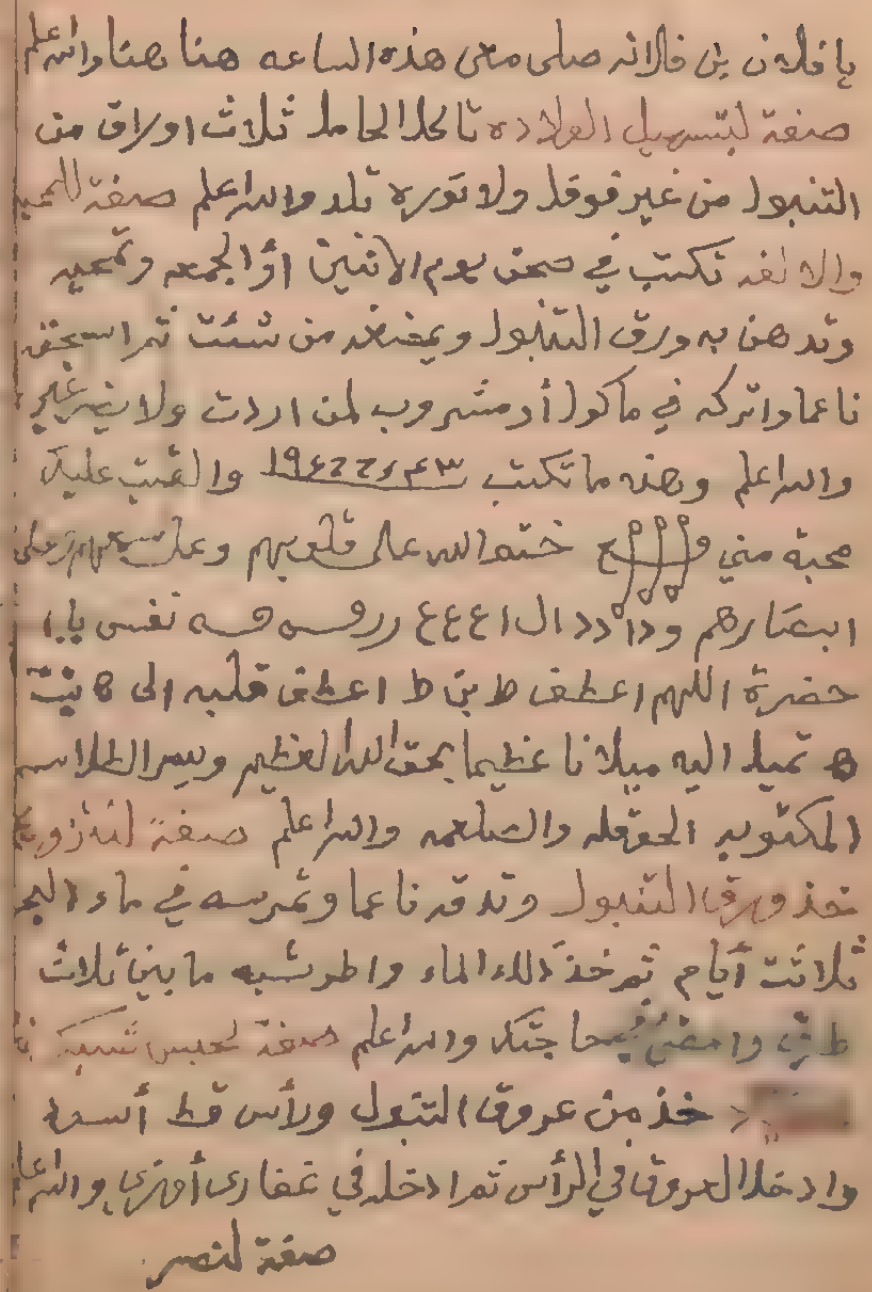 يا فلان بن فلانه صلى معى هذه الساعه هنا هنا والله اعلم
صفة لتسهيل الولاده تاكل الحامل ثلاث اوراق من
التنبول من غير فوفل ولا نوره تلد والله اعلم صفة
والالفه تكتب في صحن يوم الاثنين أو الجمعه وتمحيه
وتدهن به ورق التنبول ويمضغه من شئت ثم اسحقه
ناعما واتركه في ماكول أو مشروب لمن اردت ولا يضر غير
والله اعلم وهذه ما تكتب والقيت عليك
محبة مني ختم الله على قلوبهم وعلى سمعهم وعلى
ابصارهم نفس
حضرة اللهم اعطف ط بن ط اعطف قلبه الى ه بنت
ه تميل اليه ميلانا عظيما بحق الله العظيم وبسر الطلاسم
المكتوبه والله اعلم صفة
تخذ ورق التنبول وتدقه ناعما وتمرسه في ماء البحر
ثلاثت أيام ثم خذ ذلك الماء واطرشبه ما بين ثلاث
طرق وامض بحاجتك والله اعلم صفة لحبس
خذ من عروق التنبول ورأس قط أسود
وادخل العروق في الرأس ثم ادخله في والله اعلم
صفة لنصر